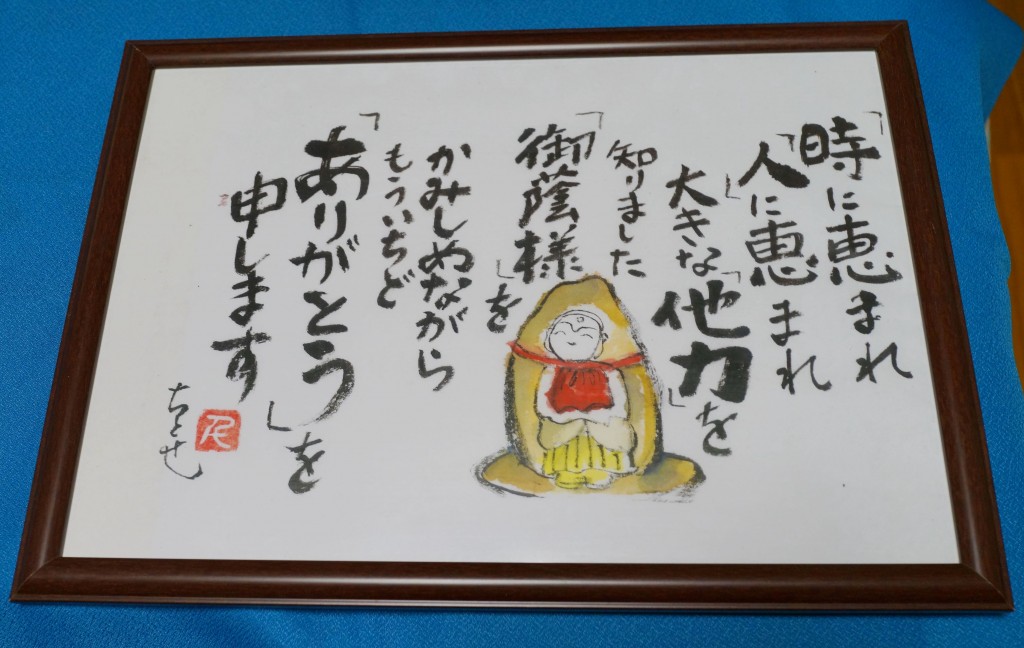 「時」に恵まれ
「人」に恵まれ
大きな「他力」を
知りました
「御蔭様」を
かみしめながら
もういちど
「ありがとう」を
申します
ちとせ